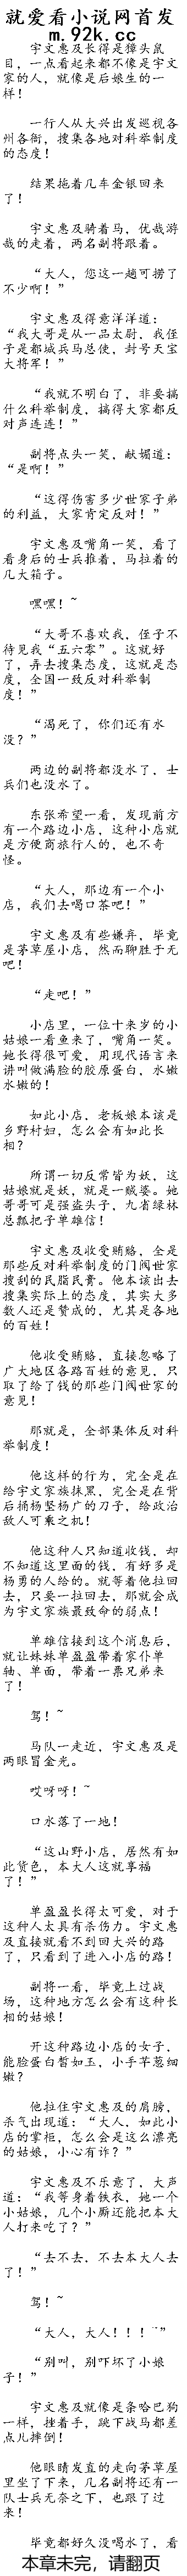 就爱看小说网首发
m.92k.cc
宇文惠及长得是獐头鼠
目，一点看起来都不像是宇文
家的人，就像是后娘生的一
样！
一行人从大兴出发巡视各
州各衙，搜集各地对科举制度
的态度！
结果拖着几车金银回来
了！
宇文惠及骑着马，优哉游
哉的走着，两名副将跟着。
“大人，您这一趟可捞了
不少啊！”
宇文惠及得意洋洋道：
“我大哥是从一品太尉，我侄
子是都城兵马总使，封号天宝
大将军！”
“我就不明白了，非要搞
什么科举制度，搞得大家都反
对声连连！”
副将点头一笑，献媚道：
“是啊！”
“这得伤害多少世家子弟
的利益，大家肯定反对！”
宇文惠及嘴角一笑，看了
看身后的士兵推着，马拉着的
几大箱子。
嘿嘿！~
“大哥不喜欢我，侄子不
待见我“五六零”。这就好
了，弄去搜集态度，这就是态
度，全国一致反对科举制
度！”
“渴死了，你们还有水
没？”
两边的副将都没水了，士
兵们也没水了。
东张希望一看，发现前方
有一个路边小店，这种小店就
是方便商旅行人的，也不奇
怪。
“大人，那边有一个小
店，我们去喝口茶吧！”
宇文惠及有些嫌弃，毕竟
是茅草屋小店，然而聊胜于无
吧！
“走吧！”
小店里，一位十来岁的小
姑娘一看鱼来了，嘴角一笑。
她长得很可爱，用现代语言来
讲叫做满脸的胶原蛋白，水嫩
水嫩的！
如此小店、老板娘本该是
乡野村妇，怎么会有如此长
相？
所谓一切反常皆为妖，这
姑娘就是妖，就是一贼婆。她
哥哥可是强盗头子，九省绿林
总瓢把子单雄信！
宇文惠及收受贿赂，全是
那些反对科举制度的门阀世家
搜刮的民脂民膏。他本该出去
搜集实际上的态度，其实大多
数人还是赞成的，尤其是各地
的百姓！
他收受贿赂，直接忽略了
广大地区各路百姓的意见，只
取了给了钱的那些门阀世家的
意见！
那就是，全部集体反对科
举制度！
他这样的行为，完全是在
给宇文家族抹黑，完全是在背
后捅杨坚杨广的刀子，给政治
敌人可乘之机！
他这种人只知道收钱，却
不知道这里面的钱，有好多是
杨勇的人给的。就等着他拉回
去，只要一拉回去，那就会成
为宇文家族最致命的弱点！
单雄信接到这个消息后，
就让妹妹单盈盈带着家仆单
轴、单面，带着一票兄弟来
了！
驾！~
马队一走近，宇文惠及是
两眼冒金光。
哎呀呀！~
口水落了一地！
“这山野小店，居然有如
此货色，本大人这就享福
了！”
单盈盈长得太可爱，对于
这种人太具有杀伤力。宇文惠
及直接就看不到回大兴的路
了，只看到了进入小店的路！
副将一看，毕竟上过战
场，这种地方怎么会有这种长
相的姑娘！
开这种路边小店的女子，
能脸蛋白皙如玉，小手芊葱细
嫩？
他拉住宇文惠及的肩膀，
杀气出现道：“大人，如此小
店的掌柜，怎么会是这么漂亮
的姑娘，小心有诈？”
宇文惠及不乐意了，大声
道：“我等身着铁衣，她一个
小姑娘，几个小厮还能把本大
人打来吃了？”
“去不去、不去本大人去
了！”
驾！~
“大人，大人！！！¨”
“别叫，别吓坏了小娘
子！”
宇文惠及就像是条哈巴狗
一样，捶着手，跳下战马都差
点儿摔倒！
他眼睛发直的走向茅草屋
里坐了下来，几名副将还有一
队士兵无奈之下，也跟了过
来！
毕竟都好久没喝水了，看
本章未完，请翻页